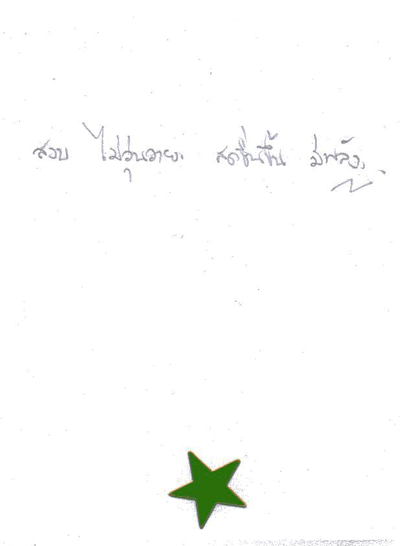 สงบ ไม่วุ่นวาย สดชื่นขึ้น มีพลัง